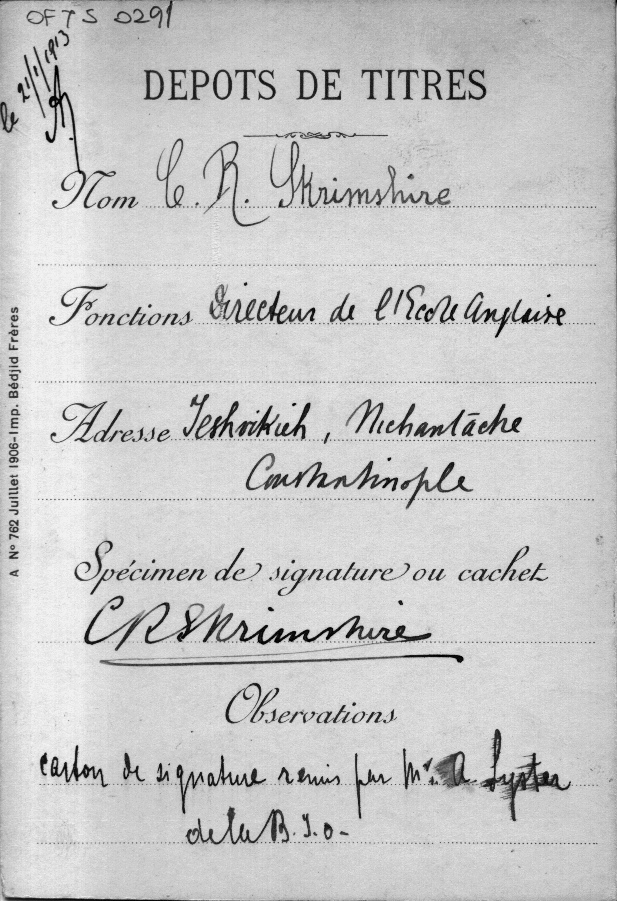 OFTS 0291
le 21/1/1913
DEPOTS DE TITRES
Nom C. R. Skrimshire
Fonctions Directeur de l'Ecole Anglaise
Adresse Teshvikieh, Nichantâche
Constantinople
Spécimen de signature ou cachet
CRSkrimshire
Observations
carton de signature remis par Mr. A Lyster
de la B. I. O-
A Nº 762 Juillet 1906-Imp. Bédjid Frères